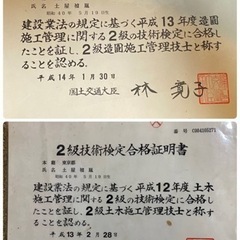 氏名 土屋
昭和40年5月18日生
建設業法の規定に基づく平成13年度造園
施工管理に関する2級の技術検定に合格し
たことを証し、2級造園施工管理技士と称す
ることを認める。
平成14年1月30日
国土交通大臣 林 寛子
2級技術検定合格証明書
本籍 東京都
氏名 土屋
建設業法の規定に基づく平成12年度土木
施工管理に関する2級の技術検定に合格し
たことを証し、2級土木施工管理技士と称す
ることを認める。
平成13年2月28日